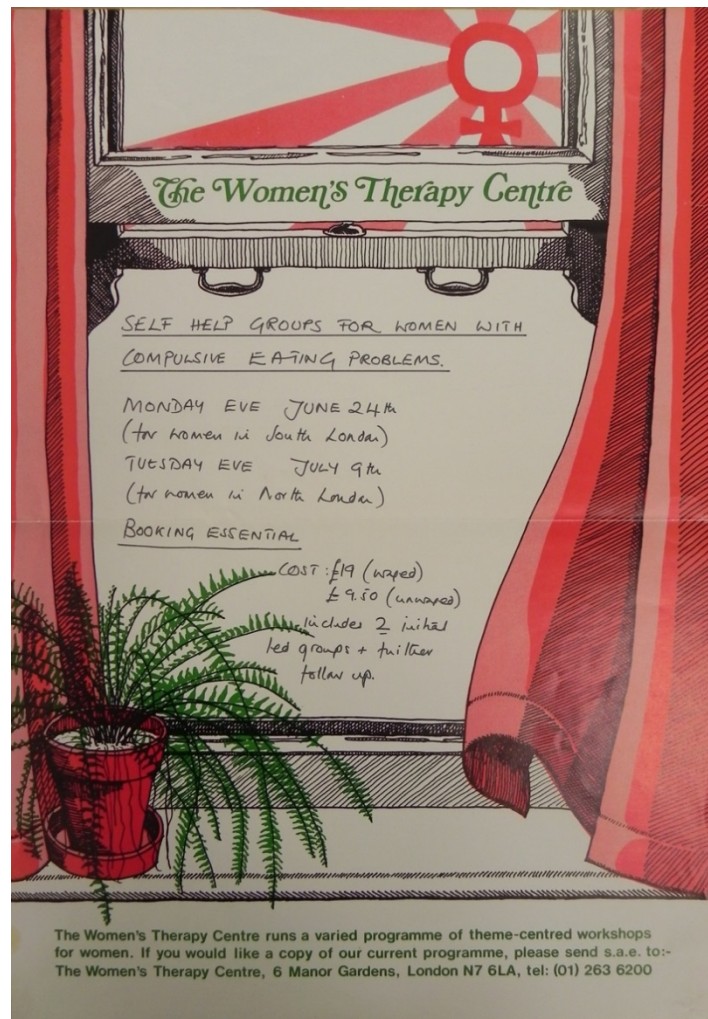 The Women's Therapy Centre
SELF HELP GROUPS FOR WOMEN WITH
COMPULSIVE EATING PROBLEMS.
MONDAY EVE JUNE 24th
(for women in South London)
TUESDAY EVE JULY 9th
(for women in North London)
BOOKING ESSENTIAL
COST: £19 (waged)
£9.50 (unwaged)
includes 2 initial
led groups + further
follow up.
The Women's Therapy Centre runs a varied programme of theme-centred workshops
for women. If you would like a copy of our current programme, please send s.a.e. to:-
The Women's Therapy Centre, 6 Manor Gardens, London N7 6LA, tel: (01) 263 6200